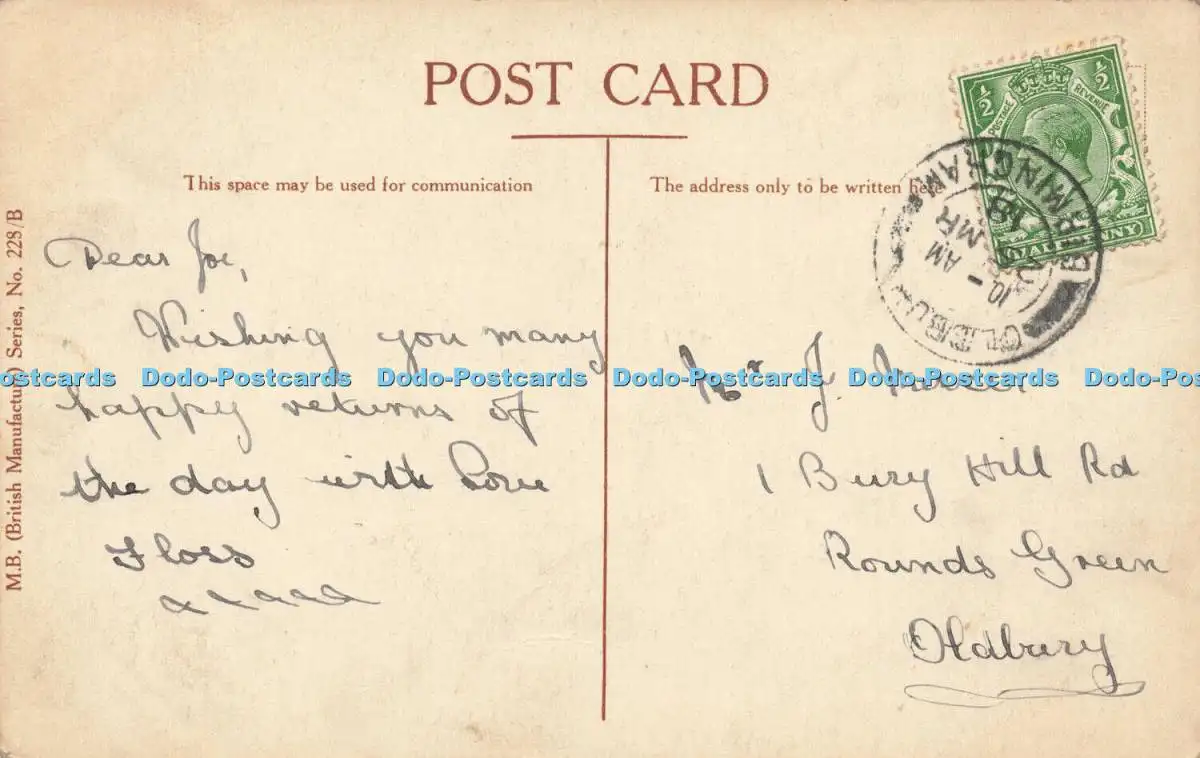 POST CARD
This space may be used for communication
The address only to be written here
M.B. (British Manufacture) Series, No. 228/B
½ ½
POSTAGE REVENUE
HALFPENNY
OLDBURY BIRMINGHAM
10 - AM
MR
18
Dear Joe,
Wishing you many
happy returns of
the day with Love
Floss
xxxxx
Mr J.
1 Bury Hill Rd
Rounds Green
Oldbury
Dodo-Postcards Dodo-Postcards Dodo-Postcards Dodo-Postcards Dodo-Postcards Dodo-Postcards